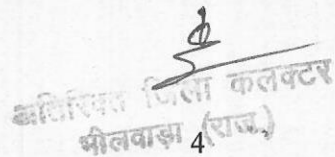 अतिरिक्त जिला कलक्टर
भीलवाड़ा (राज.)
4